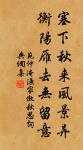 塞下秋來風景异
衡陽雁去無留意
范仲淹漁家傲秋思詞
典闕集